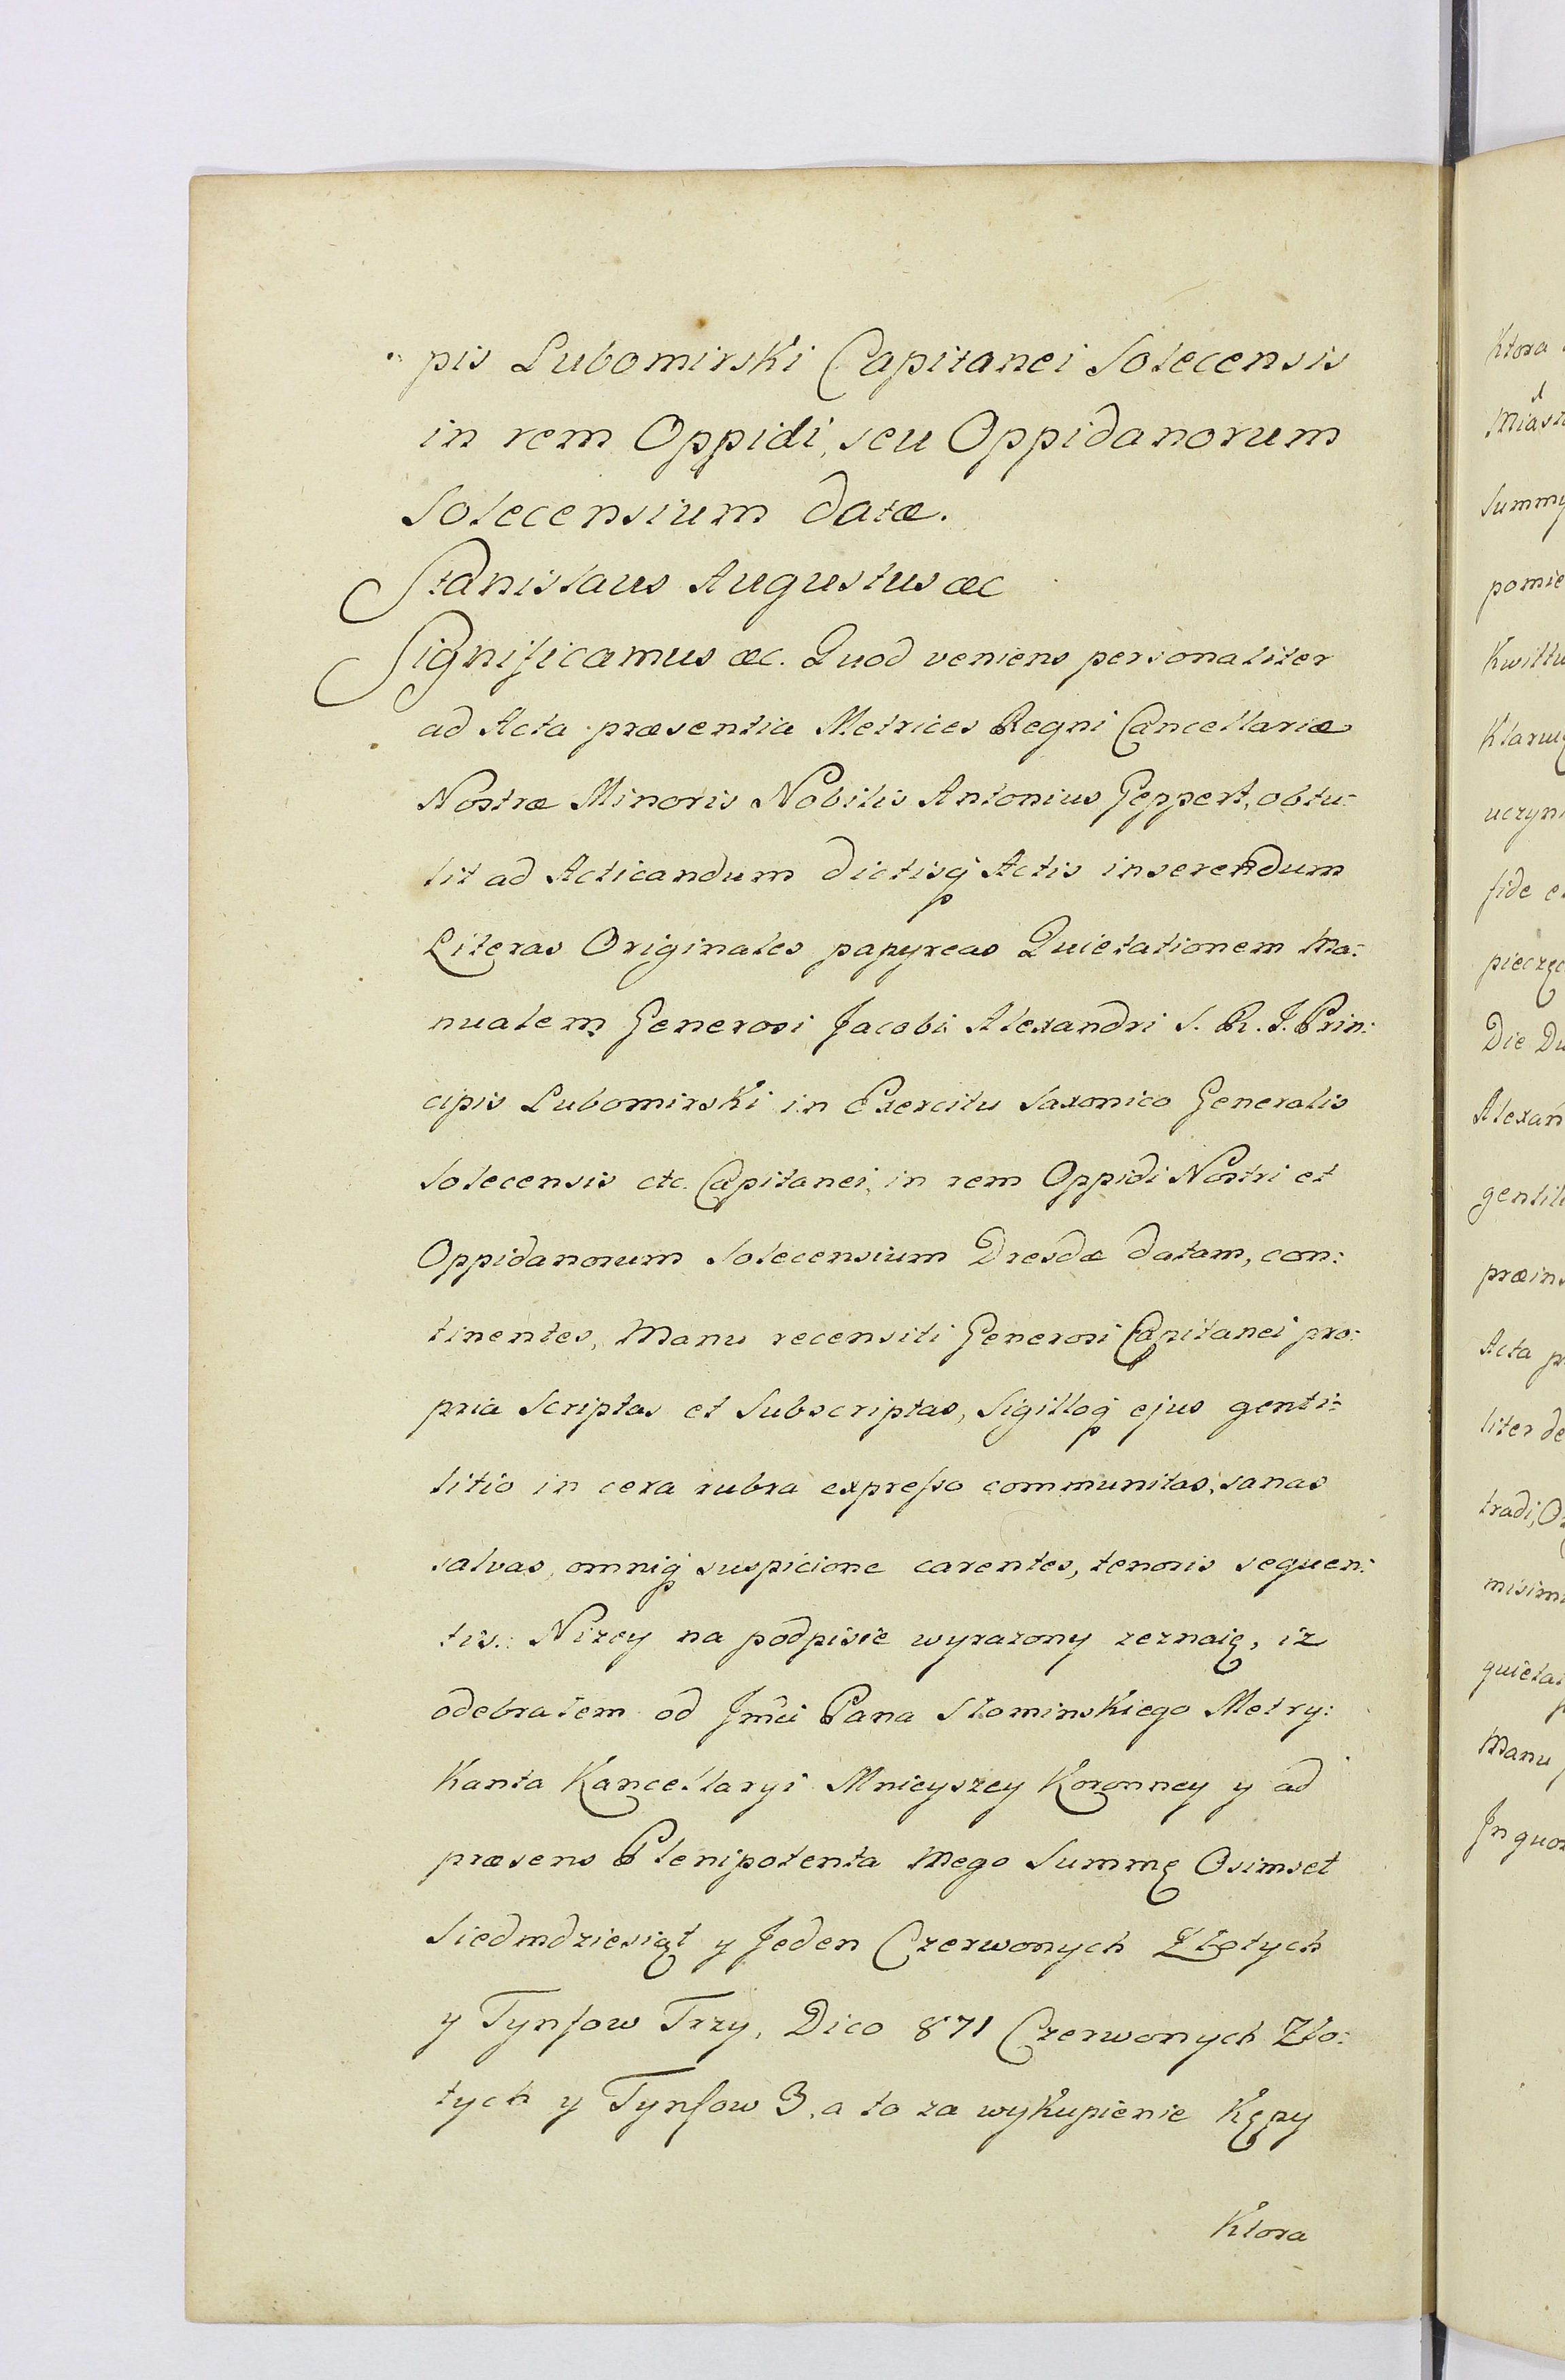 pis Lubomirski Capitanei Solecensis
in rem Oppidi, seu Oppidanorum
Solecensium datæ.
Stanislaus Augustus æc
Significamus æc. Quod veniens personaliter
ad Acta præsentia Metrices Regni Cancellariæ
Nostræ Minoris Nobilis Antonius Geppert, obtu:
lit ad Acticandum dictisq Actis inserendum
Literas Originales papyreas Quietationem Ma:
nualem Generosi Jacobi Alexandri S. R. J. Prin:
cipis Lubomirski in Exercitu Saxonico Generalis
Solecensis etc. Capitanei, in rem Oppidi Nostri et
Oppidanorum Solecensium Dresdæ datam, con:
tinentes, Manu recensiti Generosi Capitanei pro:
pria Scriptas et Subscriptas, Sigilloq ejus genti:
litio in cera rubra expresso communitas, sanas
salvas, omniq suspicione carentes, tenoris sequen:
tis.: Nizey na podpisie wyrazony zeznaię, iz
odebrałem od Jmci Pana Słominskiego Metry:
kanta Kancellaryi Mnieyszey Koronney y ad
præsens Plenipotenta Mego Summę Osimset
Siedmdziesiąt y Jeden Czerwonych Złotych
y Tynfow Trzy, Dico 871 Czerwonych Zło:
tych y Tynfow 3, a to za wykupienie Kępy
Ktora
Ktora
Miast
Summy
pomie
Kwittu
uczyni
fide e
pieczęc
Die Du
Alexan
gentili
præins
Acta p
liter de
tradi, O
misim
quieta
Manu p
Jn quor